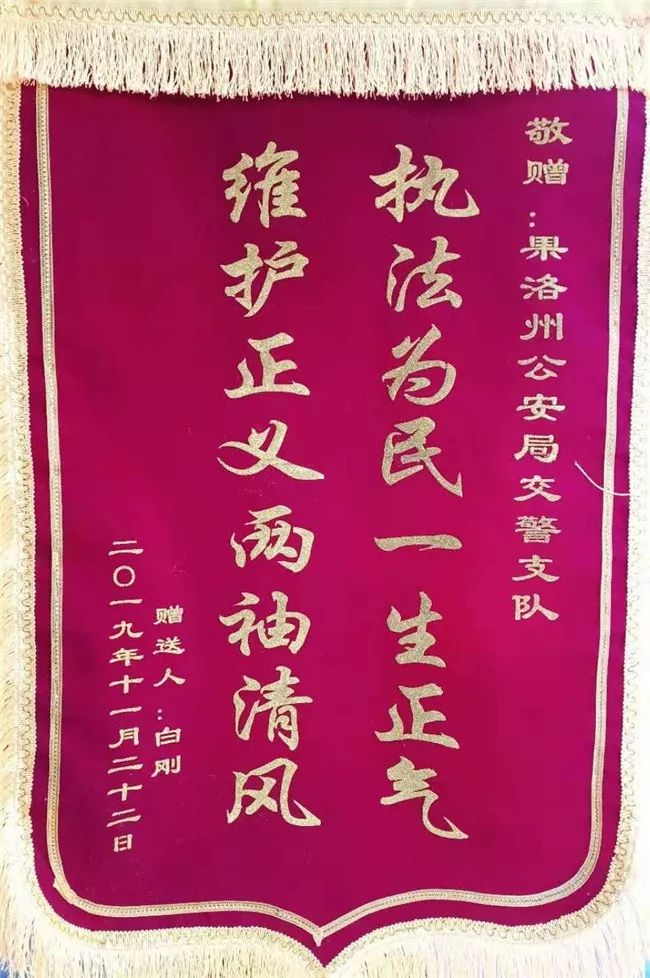 敬赠:果洛州公安局交警支队
执法为民一生正气
维护正义两袖清风
赠送人:白刚
二〇一九年十一月二十二日